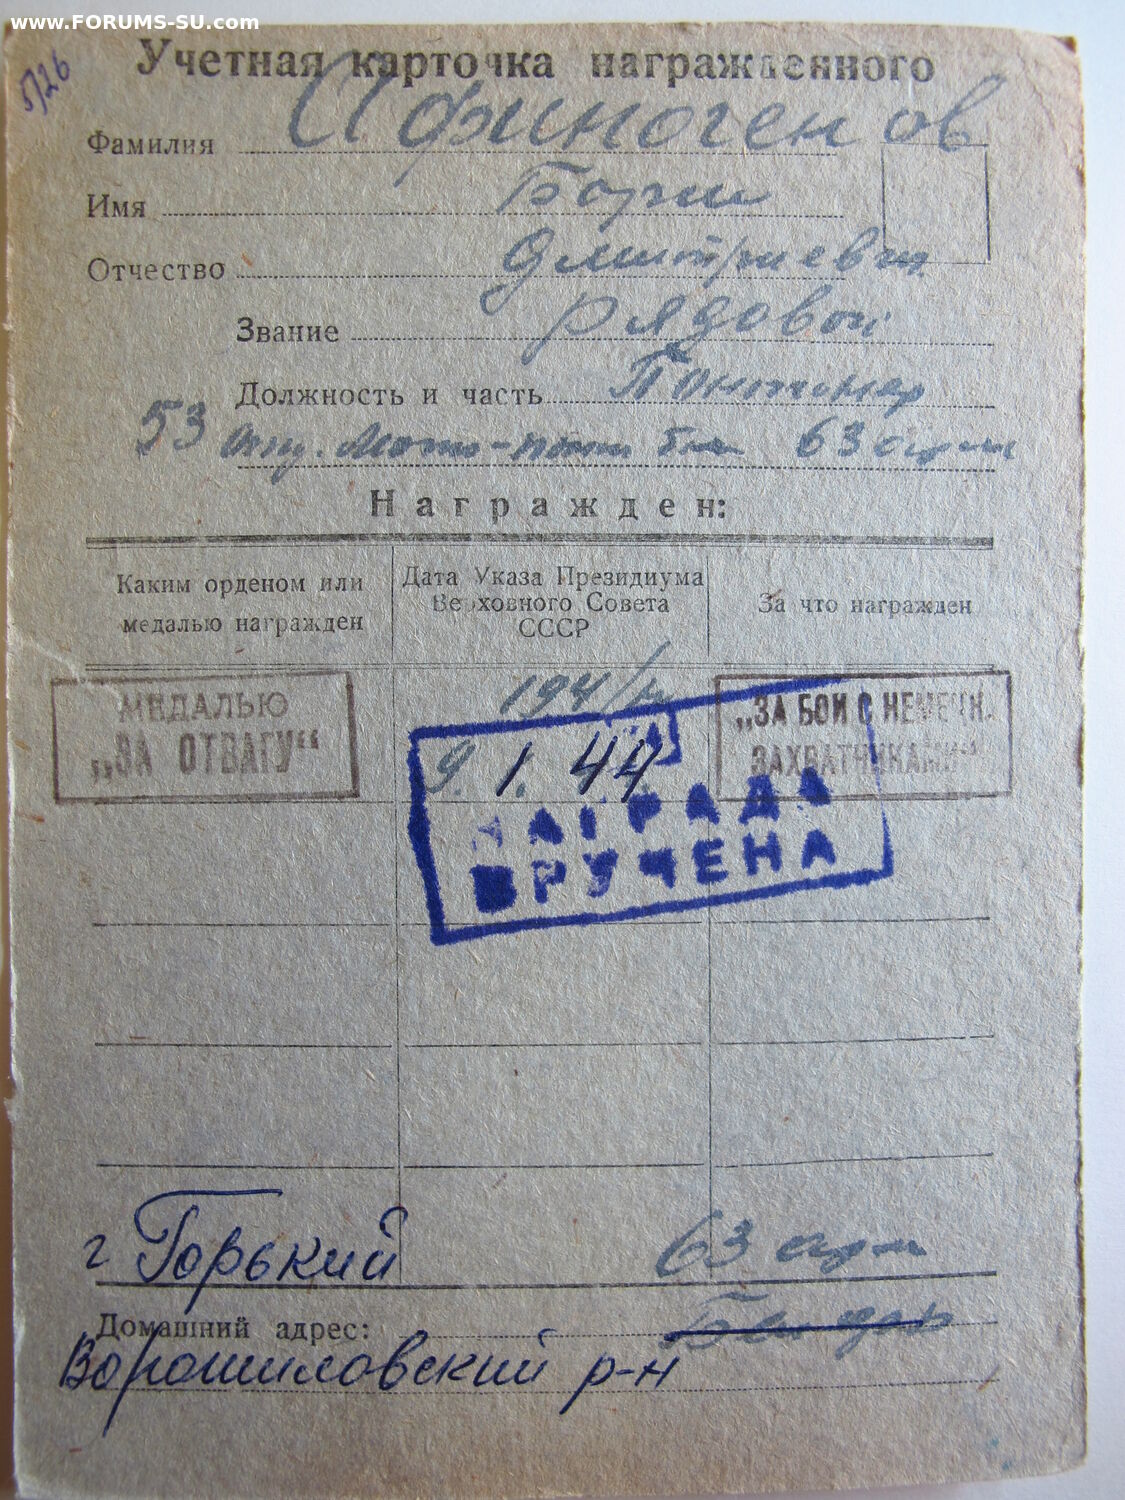 www.FORUMS-SU.com
5/26
Учетная карточка награжденного
Фамилия Афиногенов
Имя Борис
Отчество Дмитриевич
Звание Рядовой
Должность и часть Понтонер
53 отд. мото-понт б-на 63
Награжден:
Каким орденом или медалью награжден
Дата Указа Президиума Верховного Совета СССР
За что награжден
МЕДАЛЬЮ
„ЗА ОТВАГУ“
194/
9.1.44
„ЗА БОИ С НЕМЕЦК.
ЗАХВАТЧИКАМИ“
НАГРАДА
ВРУЧЕНА
г Горький
63
Домашний адрес:
Ворошиловский р-н